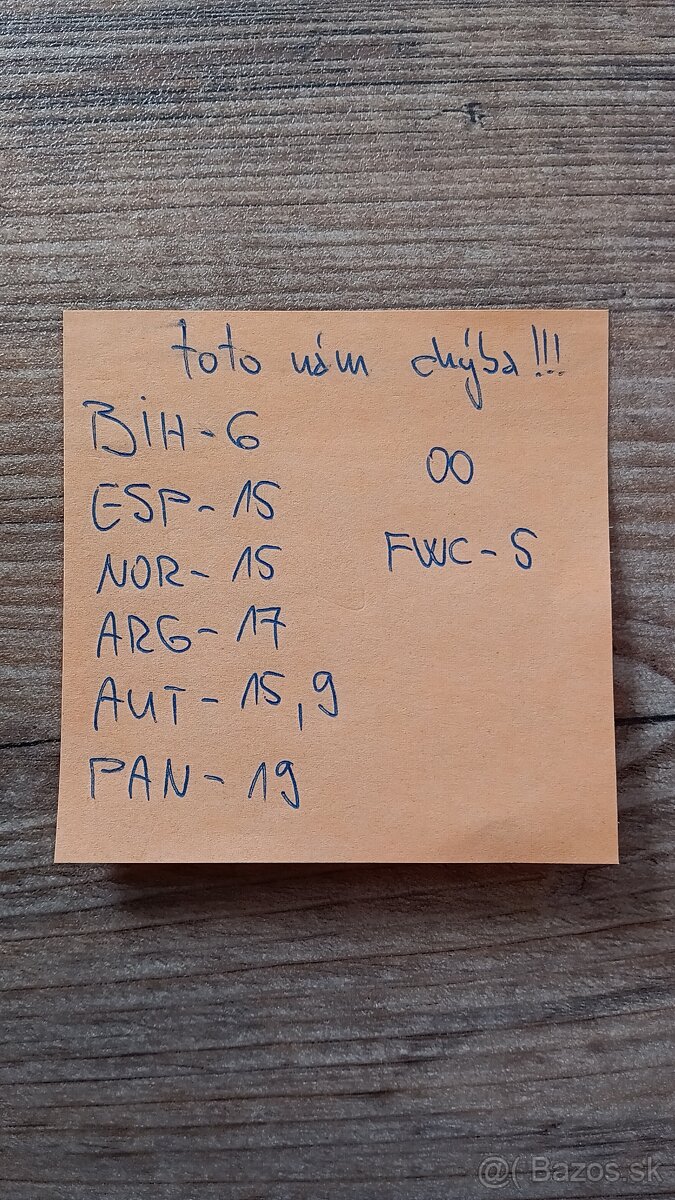 toto nám chýba!!!
BIH - 6
ESP - 15
NOR - 15
ARG - 17
AUT - 15, 9
PAN - 19
00
FWC - 5
@( Bazos.sk